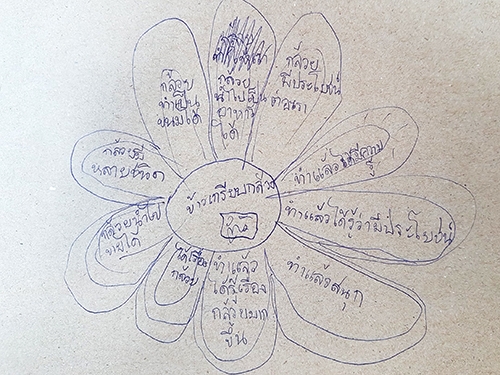 ข้าวเกรียบกล้วย
กล้วย
ทำเป็น
ขนมได้
กล้วย
นำไปเป็น
อาหาร
ได้
กล้วย
มีประโยชน์
ต่อเรา
ทำแล้วได้มีความ
รู้
ทำแล้วได้รู้ว่ามีประโยชน์
ทำแล้วสนุก
ทำแล้ว
ได้รู้เรื่อง
กล้วยมาก
ขึ้น
กล้วย
กล้วยนำไป
ขายได้
กล้วยมี
หลายชนิด